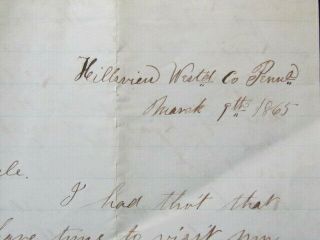 Hillsview West'd Co Penn'a
March 9th 1865
I had tho't that
have time to visit